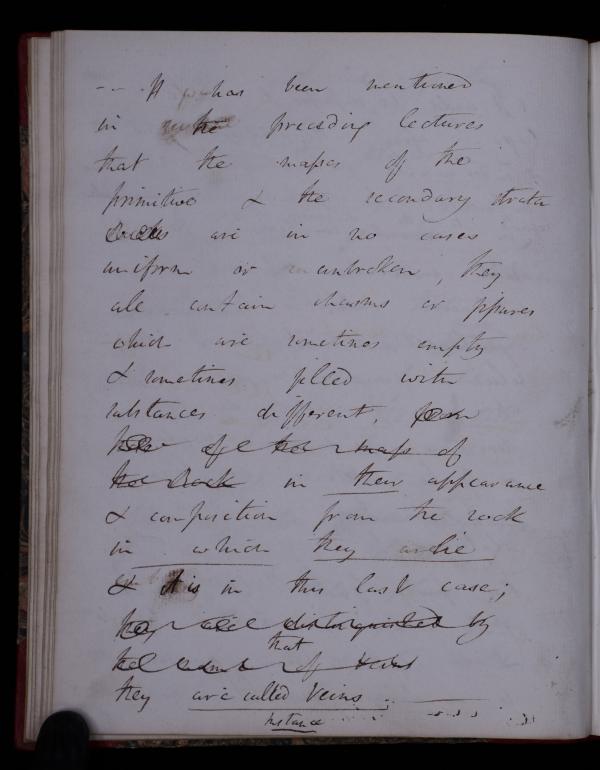 -- It has been mentioned
in the preceding lectures
that the masses of the
primitive & the secondary strata
rocks are in no cases
uniform or unbroken, they
all contain chasms or fissures
which are sometimes empty
& sometimes filled with
substances different, from
that of the mass of
the Rock in their appearance
& composition from the rock
in which they lie
& it is in this last case;
they are distinguished by
that
the name of veins
they are called Veins
Instance